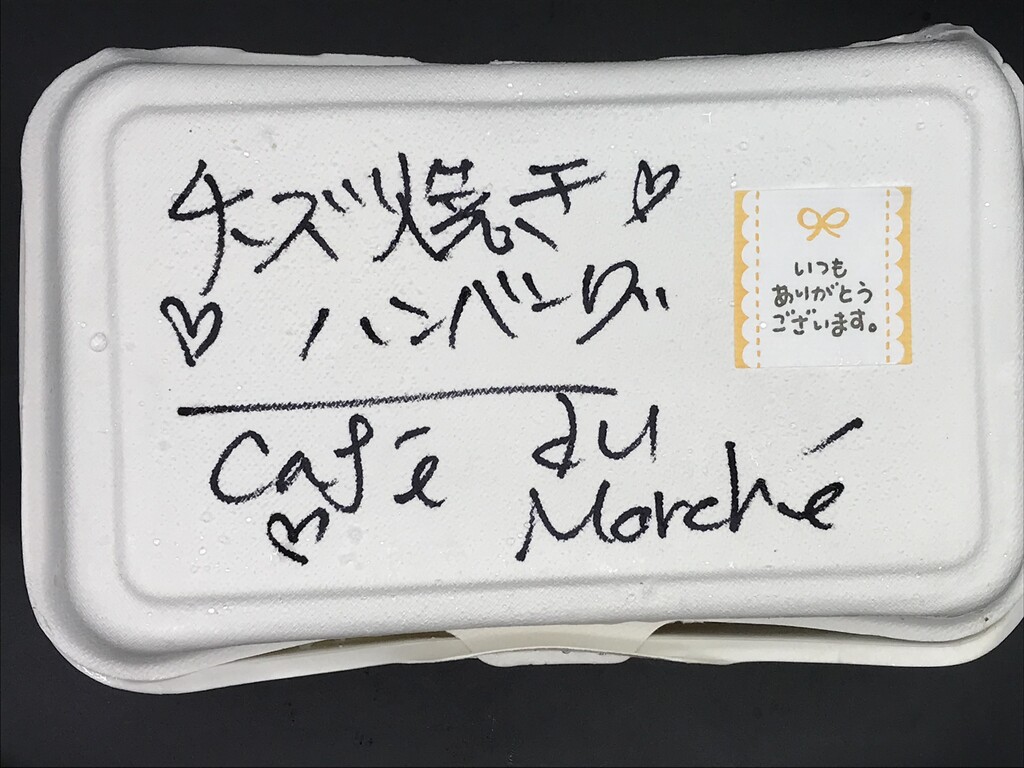 チーズ焼き♡
♡ ハンバーグ
Café du
♡ Marché
いつも
ありがとう
ございます。